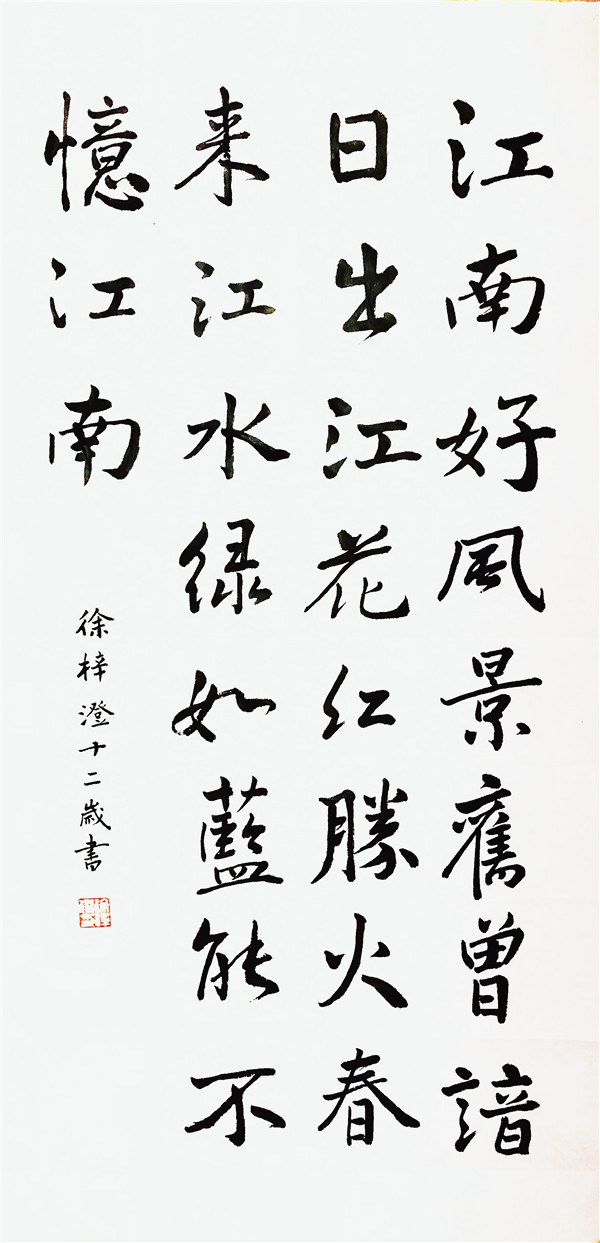 江南好風景舊曾諳
日出江花红勝火春
来江水绿如藍能不
憶江南
徐梓澄十二歲書